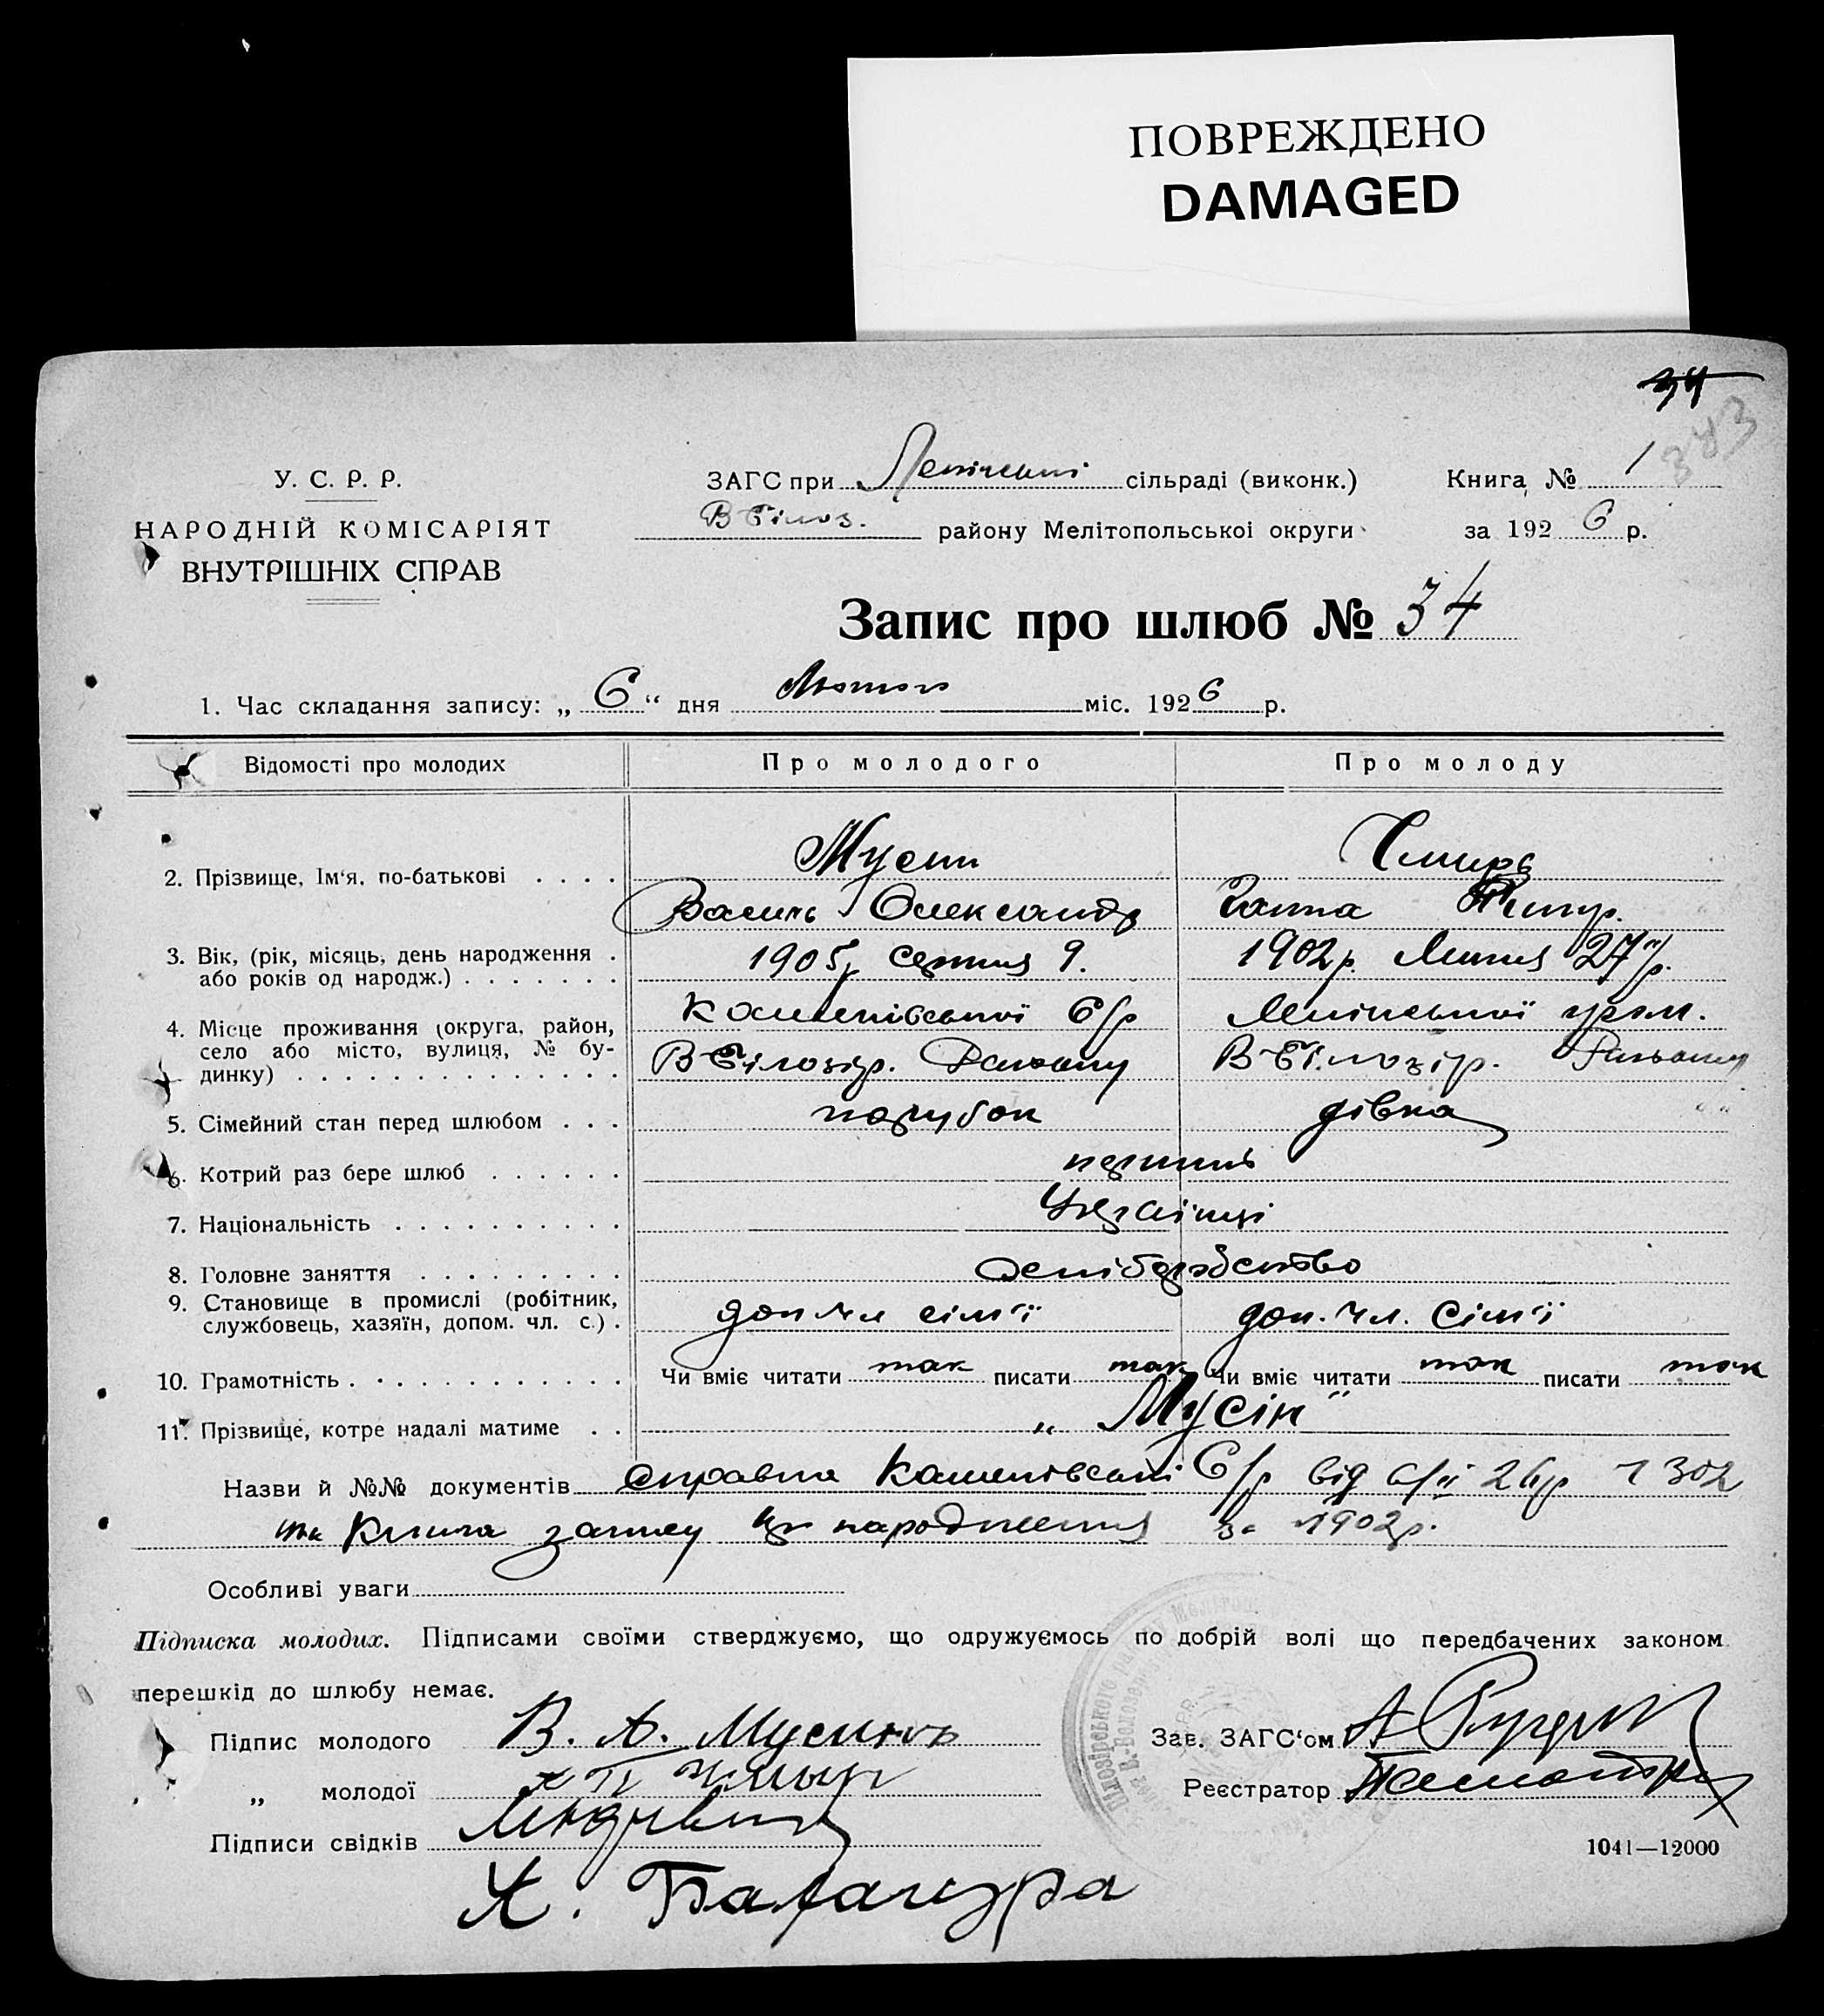 ПОВРЕЖДЕНО
DAMAGED
34
343
У. С. Р. Р.
НАРОДНІЙ КОМІСАРІЯТ
ВНУТРІШНІХ СПРАВ
ЗАГС при сільраді (виконк.)
В Білоз. району Мелітопольської округи
Книга № 1
за 1926 р.
Запис про шлюб № 34
1. Час складання запису: „ 6 “ дня Лютого міс. 1926 р.
Відомості про молодих
Про молодого
Про молоду
2. Прізвище, Ім‘я, по-батькові . . . .
Мусин
Василь Олександр
Ганна
3. Вік, (рік, місяць, день народження .
або років од народж.) . . . . . . .
1905р Серпня 9.
1902р. Липня 27
4. Місце проживання (округа, район,
село або місто, вулиця, № бу-
динку) . . . . . . . . . . . . . .
В Білозір. Району
В Білозір. Району
5. Сімейний стан перед шлюбом . . .
парубок
дівка
6. Котрий раз бере шлюб . . . . . .
перший
7. Національність . . . . . . . . . .
Українці
8. Головне заняття . . . . . . . . .
9. Становище в промислі (робітник,
службовець, хазяїн, допом. чл. с.) .
доп чл сім‘ї
доп. чл. Сім‘ї
10. Грамотність . . . . . . . . . . . .
Чи вміє читати так писати так
Чи вміє читати так писати так
11. Прізвище, котре надалі матиме . .
„ Мусін “
Назви й №№ документів Справка С/р від 26р 302
та Книга запису про народження за 1902р.
Особливі уваги
Підписка молодих. Підписами своїми стверджуємо, що одружуємось по добрій волі що передбачених законом
перешкід до шлюбу немає.
Підпис молодого В. А. Мусинъ
„ молодої
Підписи свідків
Зав. ЗАГС‘ом
Реєстратор
1041—12000